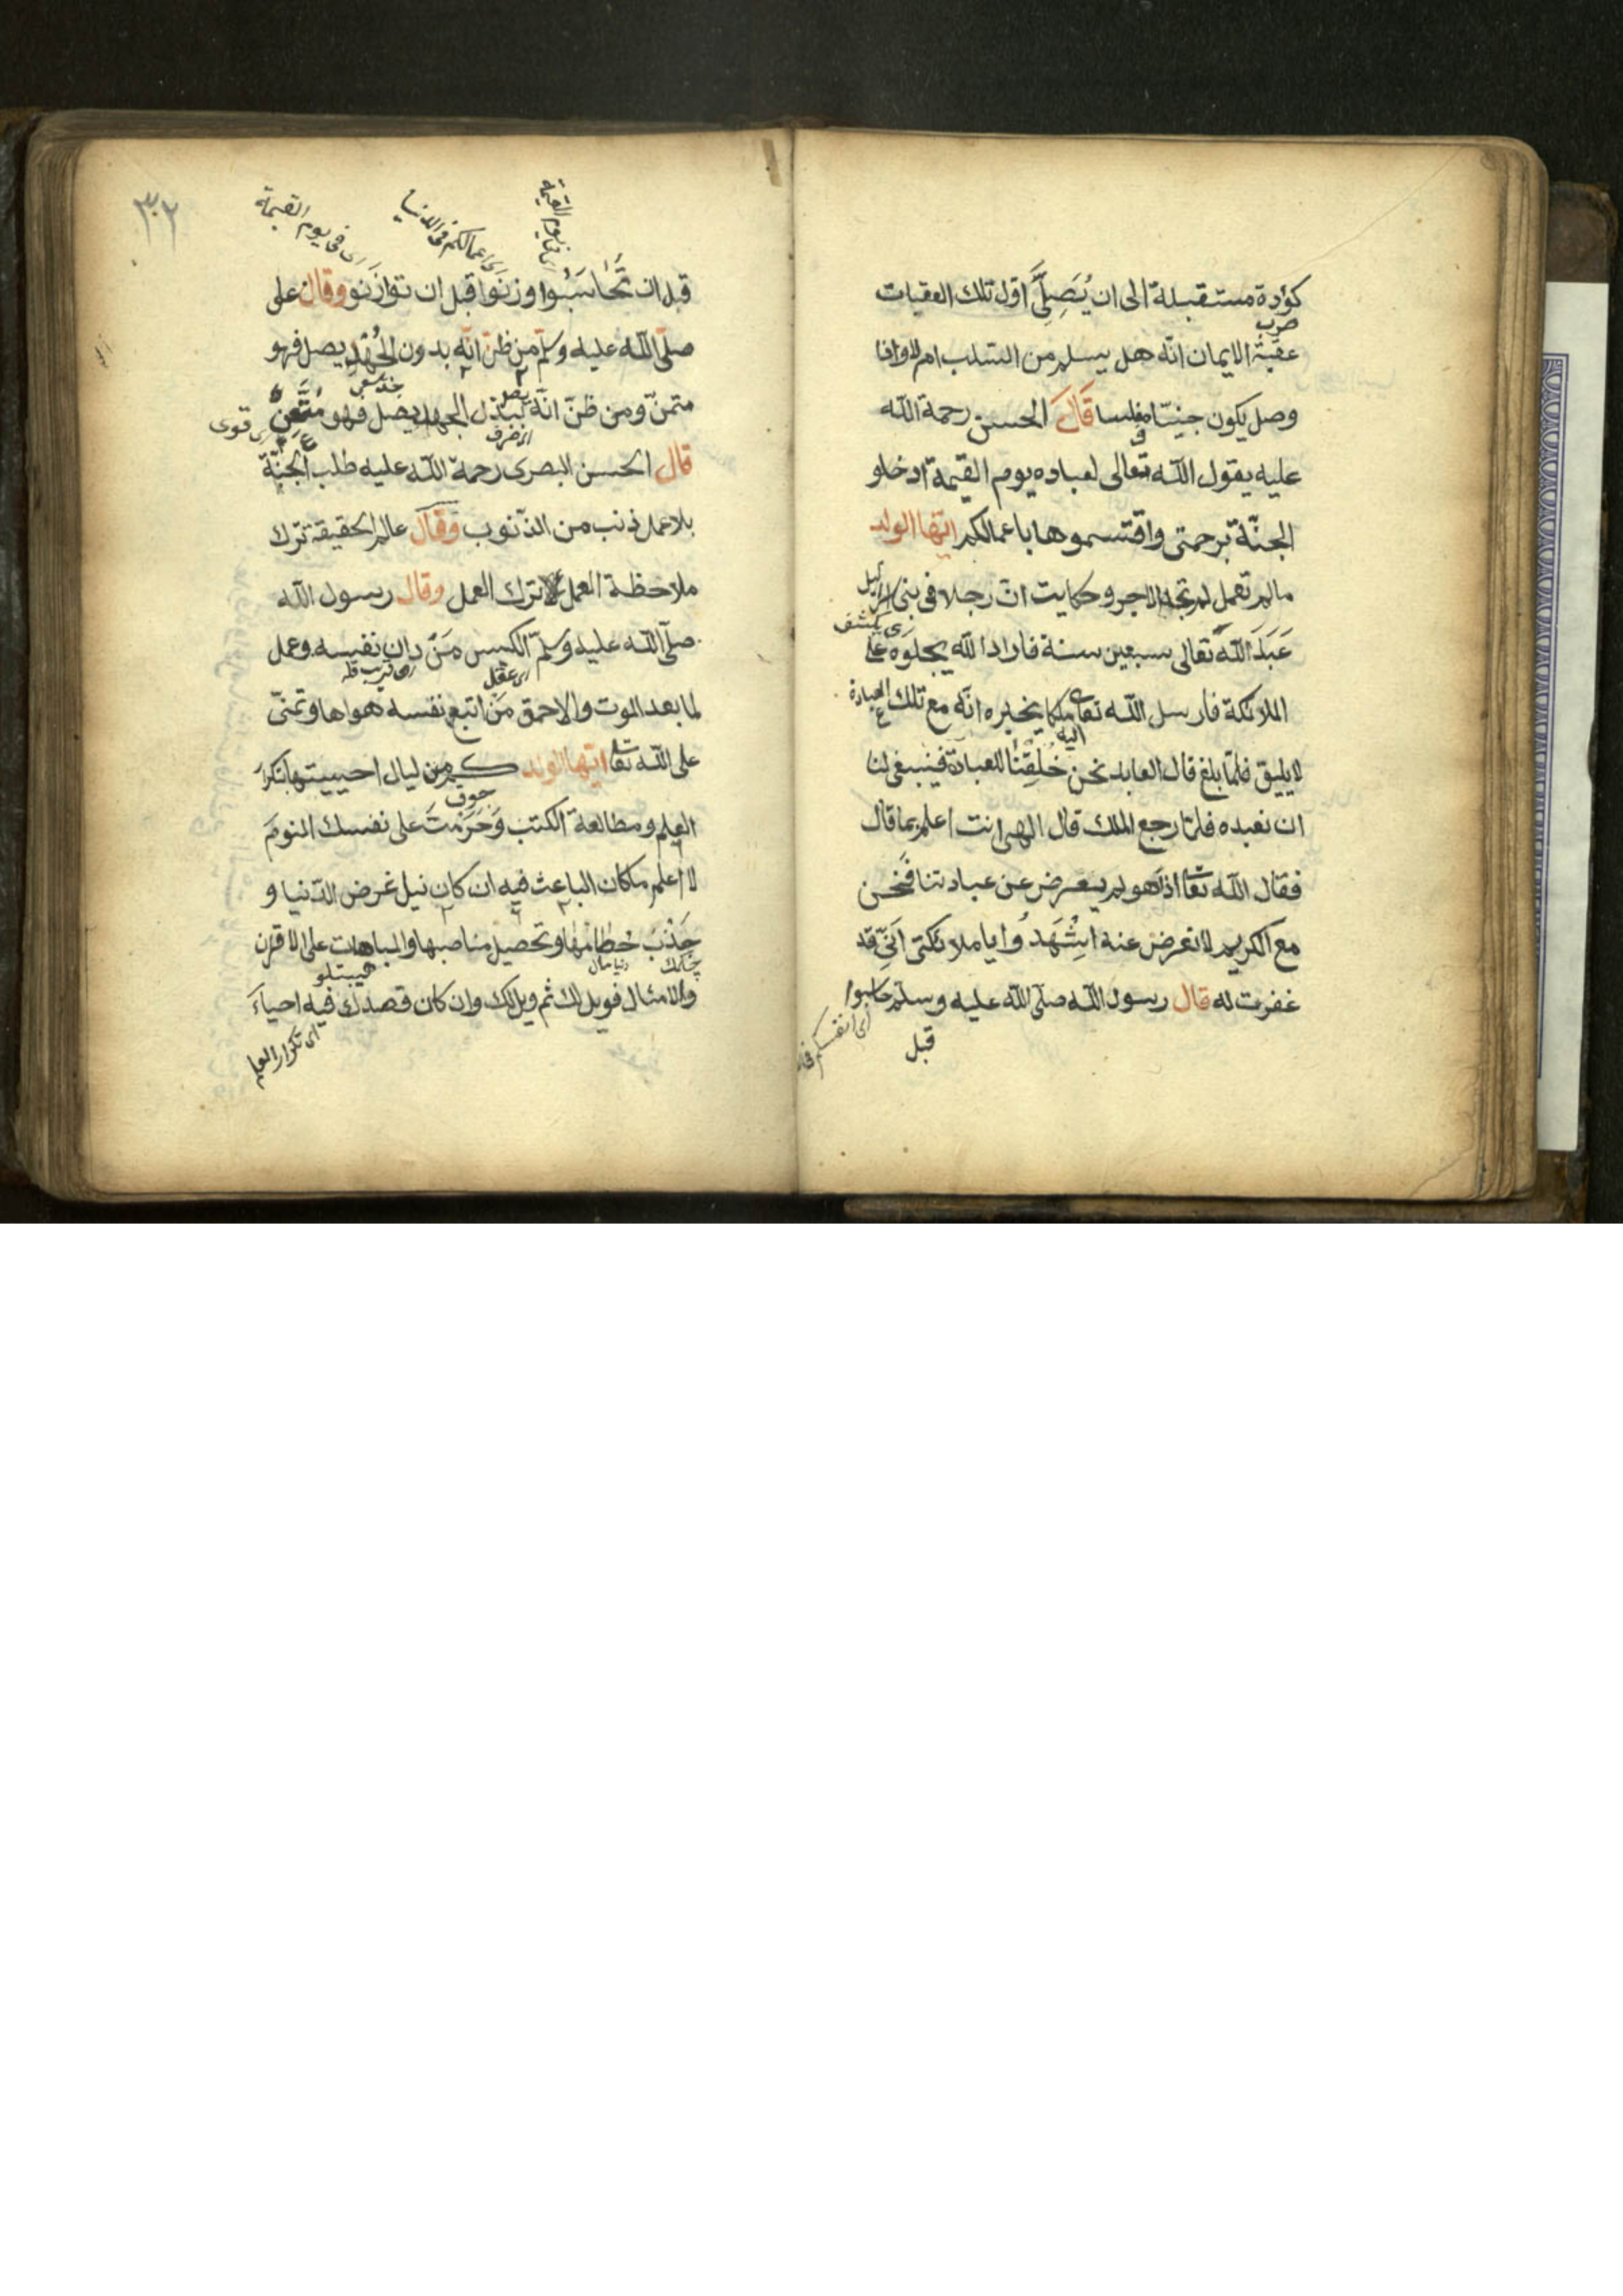 كؤدة مستقبلة الى ان يُصِلَّ اوّل تلك العقبات
عقبة الايمان انّه هل يسلم من السّلب ام لا واذا
وصل يكون جنيّا مفلسا قال الحسن رحمة اللّه
عليه يقول اللّه تعالى لعباده يوم القيمة ادخلو
الجنّة برحمتى واقتسموها باعمالكم ايّها الولد
مالم تعمل لم تجد الاجر وحكايت انّ رجلا فى بنى اسرائيل
عَبَدَ اللّه تعالى سبعين سنة فاراد اللّه يجلوه على
اى يكشف
الملائكة فارسل اللّه تعا ملكا يخبره انّه مع تلك العبادة
اليه
لا يليق فلمّا بلغ قال العابد نحن خُلِقْنَا للعبادة فينبغى لنا
ان نعبده فلمّا رجع الملك قال الهى انت اعلم بما قال
فقال اللّه تعا اذ هو لم يعرض عن عبادتنا فنحن
مع الكريم لا نعرض عنه اشْهَدُوا يا ملائكتى انّى قد
غفرت له قال رسول اللّه صلّى اللّه عليه وسلّم حاسبوا
اى انفسكم
قبل
٣٠٢
اى فى يوم القيمة
اى اعمالكم فى الدنيا
اى فى يوم القيمة
قبل ان تُحَاسَبُوا وزنوا قبل ان توازَنو وقال على
صلّى اللّه عليه وسلّم من ظنّ انّه بدون الجُهْدِ يصل فهو
متمنّ ومن ظنّ انّه ببذل الجهد يصل فهو مُتَّعَنٍّ
اى قوى
قال الحسن البصرى رحمة اللّه عليه طلب الجنّة
بلا عمل ذنب من الذّنوب وقال عالم الحقيقة ترك
ملاحظة العمل لا ترك العمل وقال رسول اللّه
صلّى اللّه عليه وسلّم الكيس مَنْ دان نفسه وعمل
اى عقل
لما بعد الموت والاحمق مَن اتبع نفسه هواها وتمنّى
على اللّه تعا ايّها الولد كم من ليال احييتها بتكرار
العلم ومطالعة الكتب وَحَرَّمْتَ على نفسك النومَ
لا اعلم ما كان الباعث فيه ان كان نيل غرض الدّنيا و
جَذْبَ حُطامها وتحصيل مناصبها والمباهات على الاقران
والامثال فويل لك ثم ويل لك وان كان قصدك فيه احياءَ
اى تكرار العلم